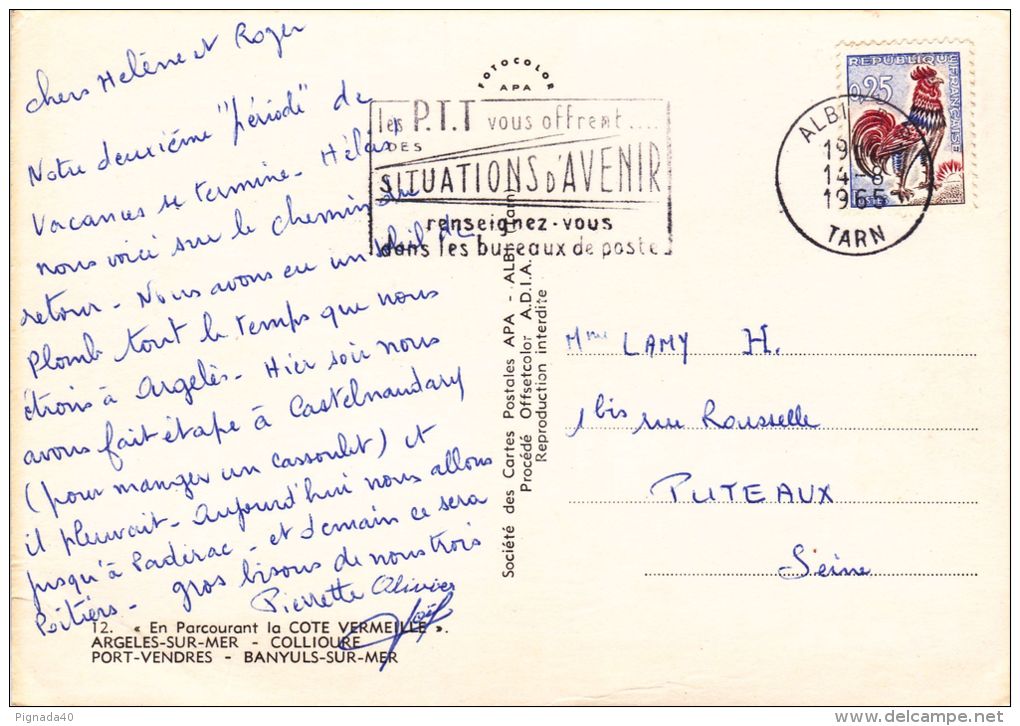 chers Helène et Roger
Notre deuxième "période" de
Vacances se termine - Hélas !
nous voici sur le chemin de
retour - Nous avons eu un soleil de
Plomb tout le temps que nous
étions à Argelès - Hier soir nous
avons fait étape à Castelnaudary
(pour manger un cassoulet) et
il pleuvait - Aujourd'hui nous allons
jusqu'à Padirac - et demain ce sera
Poitiers - gros bisous de nous trois
Pierrette Olivier
Joël
12. « En Parcourant la COTE VERMEILLE ».
ARGELES-SUR-MER - COLLIOURE
PORT-VENDRES - BANYULS-SUR-MER
FOTOCOLOR
APA
les P.T.T vous offrent....
DES
SITUATIONS D'AVENIR
renseignez-vous
dans les bureaux de poste
Société des Cartes Postales APA - ALBI (Tarn)
Procédé Offsetcolor A.D.I.A.
Reproduction interdite
REPUBLIQUE FRANÇAISE
0,25
POSTES
ALBI
19
14-8
1965
TARN
Mme LAMY H.
1 bis rue Rousselle
PUTEAUX
Seine
Pignada40
delcampe.net